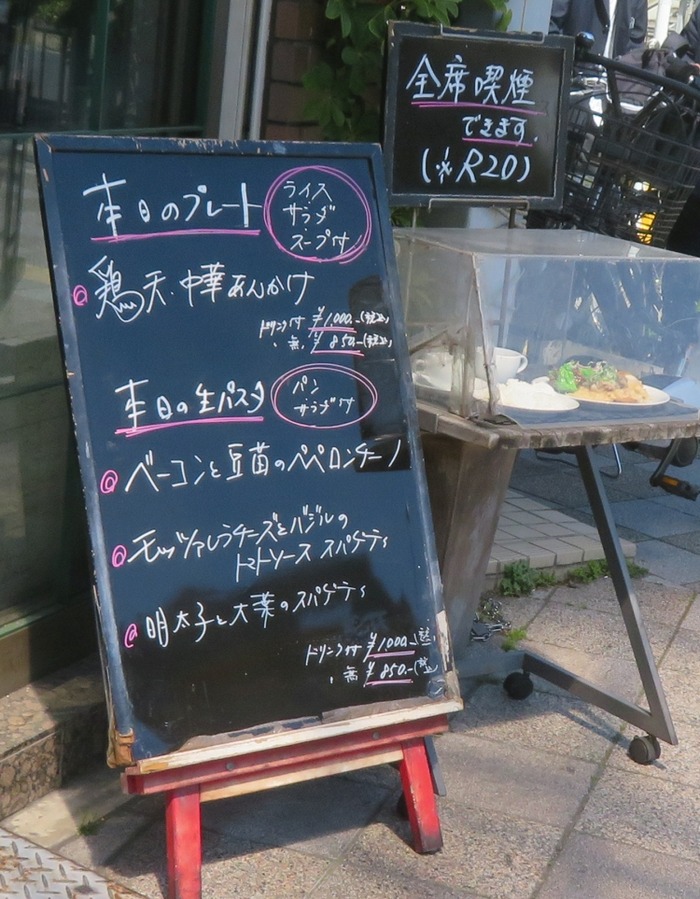 全席喫煙
できます。
(※R20)
本日のプレート
ライス
サラダ
スープ付
鶏天・中華あんかけ
ドリンク付 ¥1000-(税込)
〃 無 ¥850-(税込)
本日の生パスタ
パン
サラダ付
ベーコンと豆苗のペペロンチーノ
モッツァレラチーズとバジルの
トマトソース スパゲティ
明太子と大葉のスパゲティ
ドリンク付 ¥1000-(税込)
〃 無 ¥850-(税込)